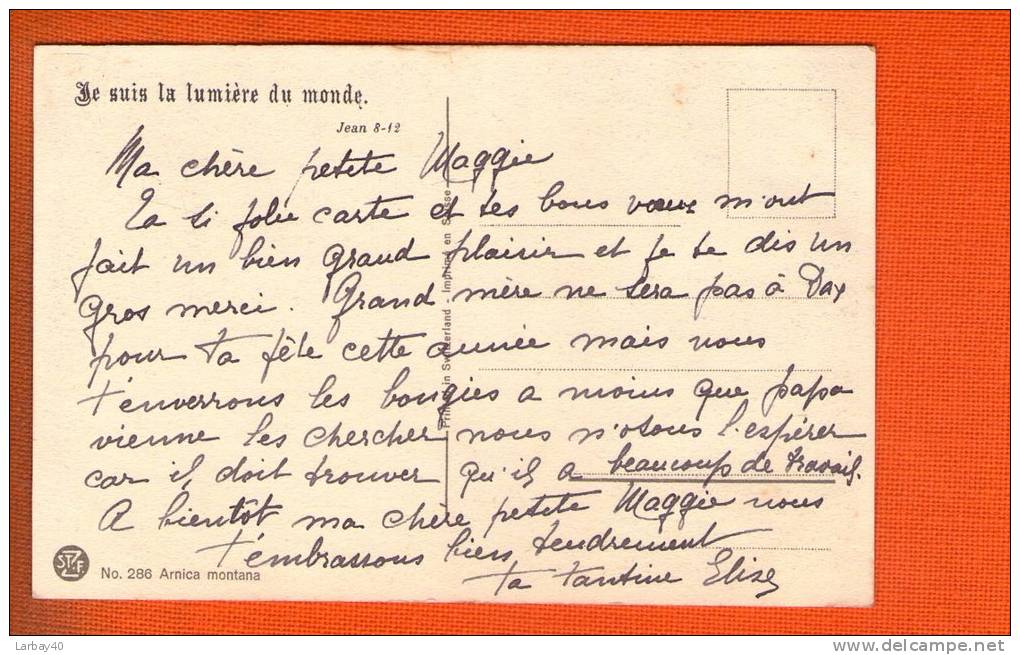 Je suis la lumière du monde.
Jean 8-12
Ma chère petite Maggie
Ta si jolie carte et tes bons vœux m'ont
fait un bien grand plaisir et je te dis un
gros merci. Grand mère ne sera pas à Dax
pour ta fête cette année mais nous
t'enverrons les bougies a moins que papa
vienne les chercher nous n'osons l'espérer
car il doit trouver qu'il a beaucoup de travail.
A bientôt ma chère petite Maggie nous
t'embrassons bien tendrement
ta tantine Elise
Printed in Switzerland - Imprimé en Suisse
STZF
No. 286 Arnica montana
Larbay40
www.delcampe.net